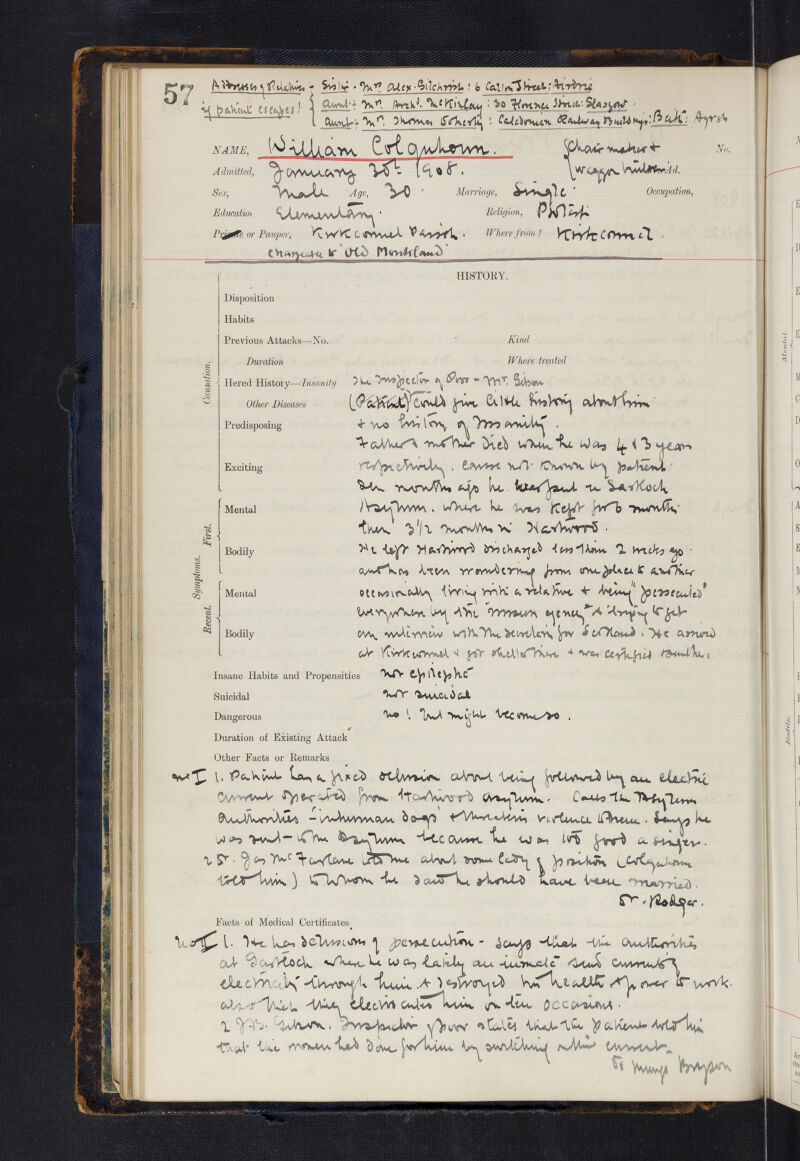 57
Addresses of Relatives - Sister - Mrs Alex. Gilchrist: 6 Carlton Street: Airdrie
if patient escapes! { Aunt:- Mrs Archd. McKinlay: 30 Florence Street: Glasgow.
Aunt:- Mrs. Thomas Doherty: Caledonian Railway Buildings: Beith: Ayrsh
NAME, William Colquhoun. Chair maker & No.
Admitted, January 30th 1908. waggon builder Ad.
Sex, Male Age, 30. Marriage, Single. Occupation,
Education Elementary. Religion, Protest
Private or Pauper, Kirkconnel Parish. Where from? Kirkconnel.
Chargeable to 'Old Monkland'
HISTORY.
Causation.
Disposition
Habits
Previous Attacks—No. Kind
Duration Where treated
Hered History—Insanity The Inspector of Poor - Mr. Gibson
Other Diseases (Patient) could give little history about him
Predisposing & no history of Insanity.
Father & mother died when he was 4 & 3 years
Exciting respectively. Cause not known by patient.
months ago he was sent to Gartloch
Symptoms. First.
Mental Asylum. where he was kept for 6 months
then 3 1/2 months in Hartwood.
Bodily He left Hartwood discharged less than 2 weeks ago.
and has been wandering from one place to another
Recent.
Mental occasionally living with a relative & being "persecuted"
everywhere by the "unseen agency" & trying to get
Bodily an interview with the Secretary for Scotland. He arrived
at Kirkconnel & got shelter there & was certified
Insane Habits and Propensities not epileptic
Suicidal not suicidal
Dangerous no! but might become so.
Duration of Existing Attack
Other Facts or Remarks
No I 1. Patient has a fixed delusion about being followed by an electric
current operated from Hartwood asylum. Calls the Asylum
Authorities - inhuman dogs & threatens violence to them. Says he
was sent - to the Asylum because he was too good a singer.
2 Jas McFarlane told me about some lady of position (Colquhoun
told him) to whom he said he should have been married.
Dr. Rodger.
Facts of Medical Certificates
No II 1. He has delusions of persecution - says that the authorities
at Gartloch where he was lately an inmate send currents of
electricity through him & destroyed his health & power to work.
also that they electrocuted him on ten occasions.
2 Gibson. Inspector of poor states that the patient told him
that the women had done for him by switching on the current.
Dr Mungo Bryson